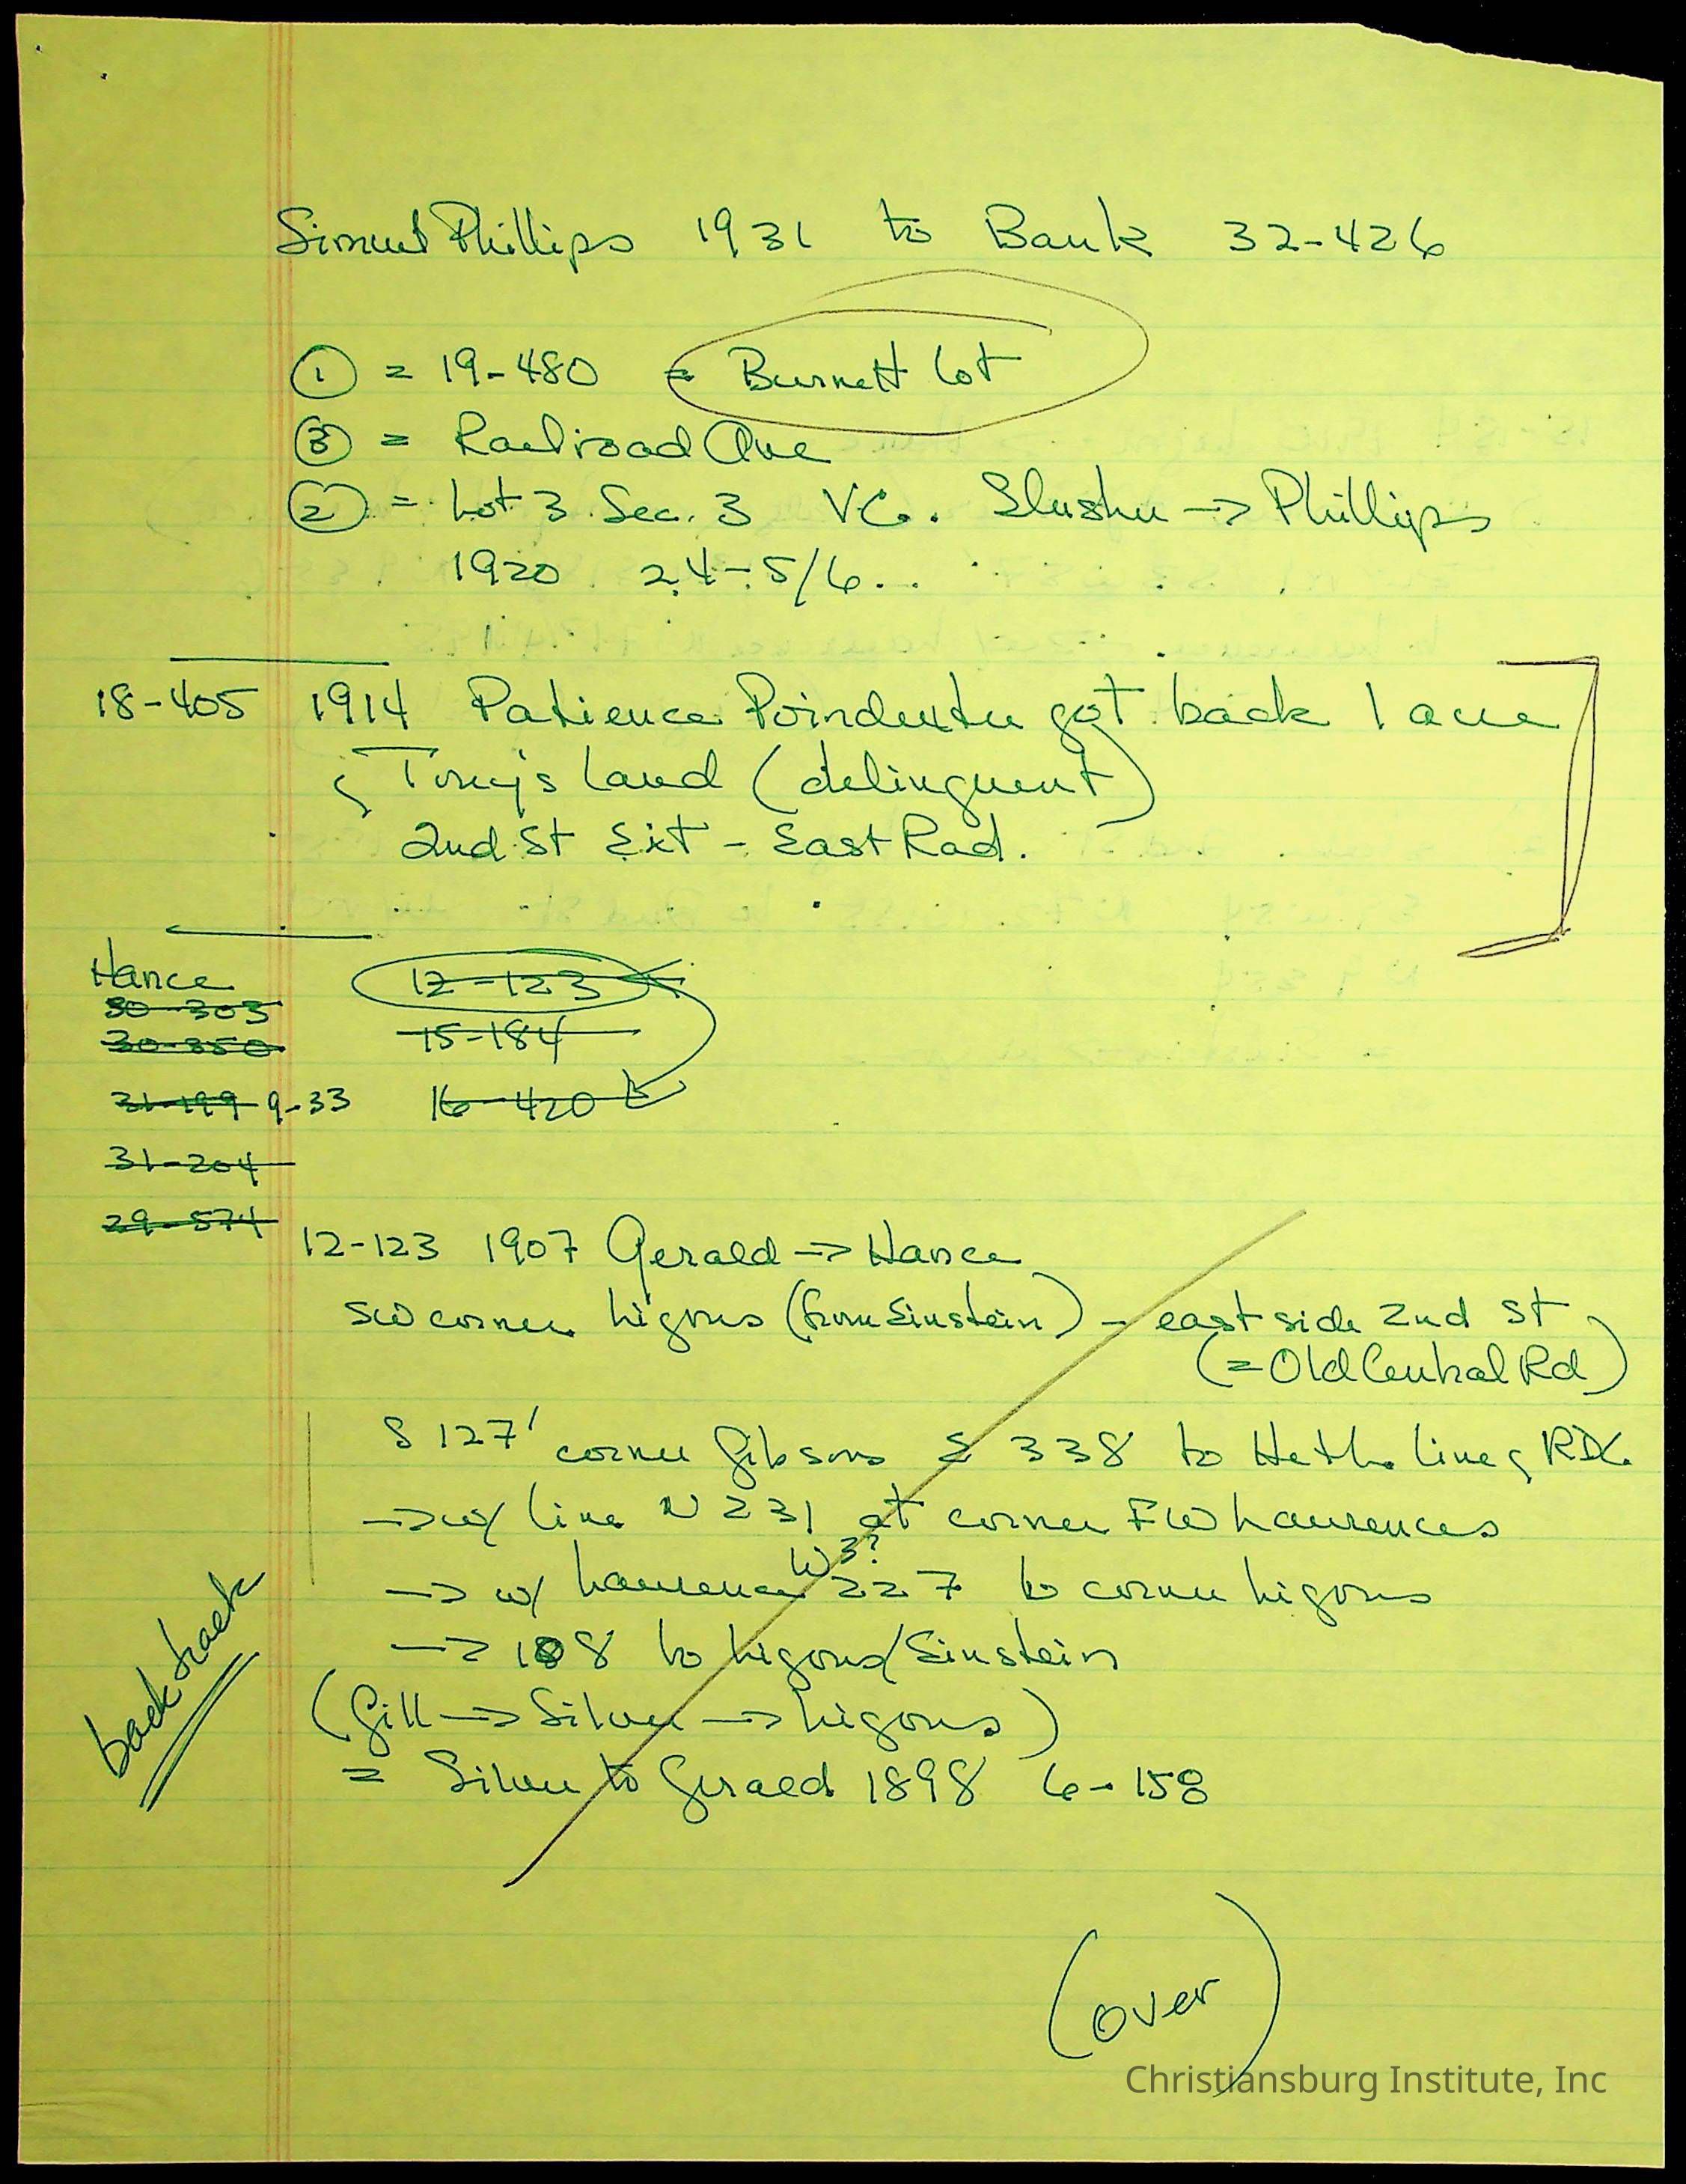 Simuel Phillips 1931 to Bank 32-426
① = 19-480 = Burnett Lot
③ = Railroad Ave
② = Lot 3 Sec. 3 VC. Slusher → Phillips
1920 24-5/6
18-405 1914 Patience Poindexter got back 1 acre
Tony's Land (delinquent)
2nd St Ext - East Rad.
Hance 12-123
30-303
30-350 15-184
31-199 9-33 16-420
31-204
29-574
12-123 1907 Gerald → Hance
SW corner Ligons (from Einstein) - east side 2nd St
(= Old Central Rd)
S 127' corner Gibsons S 338 to Heth line & RDC
→ w/ line N 231 at corner FW Lawrences
W 3?
→ w/ Lawrence 227 to corner Ligons
→ 108 to Ligons/Einstein
(Gill → Silver → Ligons)
= Silver to Gerald 1898 6-158
back track
(over)
Christiansburg Institute, Inc